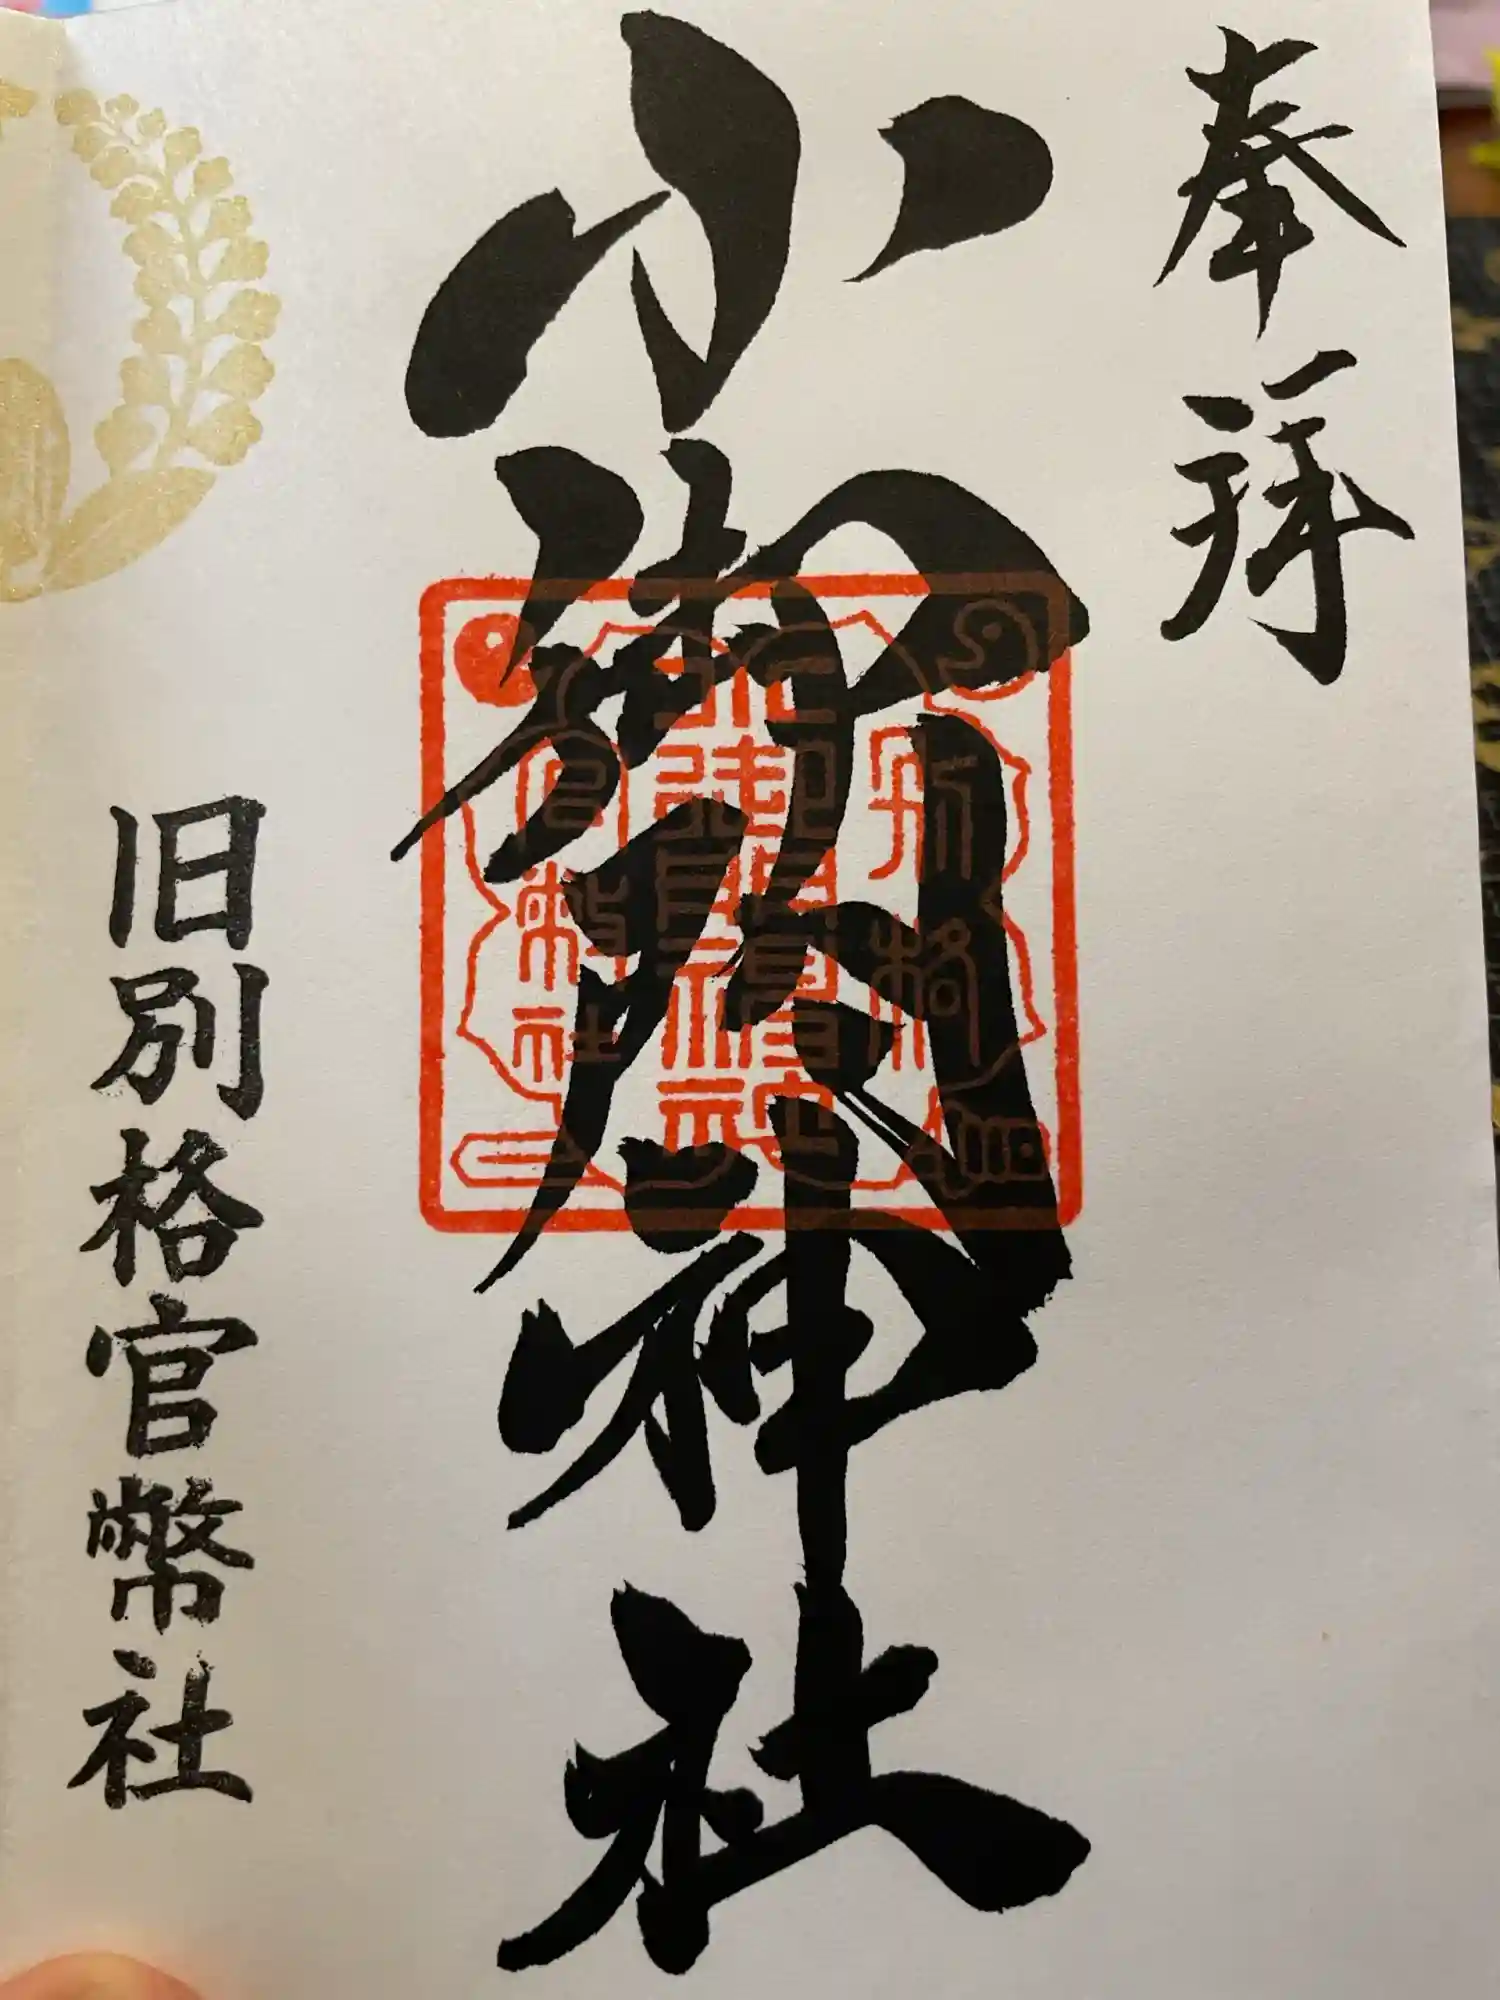 奉拝
小御門神社
別格
官幣社
旧別格官幣社